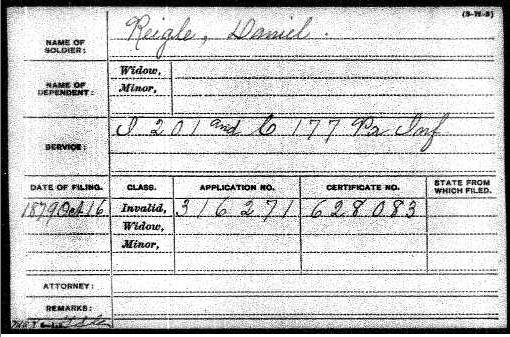 (3-72-8)
NAME OF SOLDIER: Reigle, Daniel.
NAME OF DEPENDENT: Widow,
Minor,
SERVICE: I 201 and C 177 Pa Inf
DATE OF FILING. CLASS. APPLICATION NO. CERTIFICATE NO. STATE FROM WHICH FILED.
1879 Oct 16 Invalid, 316271 628083
Widow,
Minor,
ATTORNEY:
REMARKS: